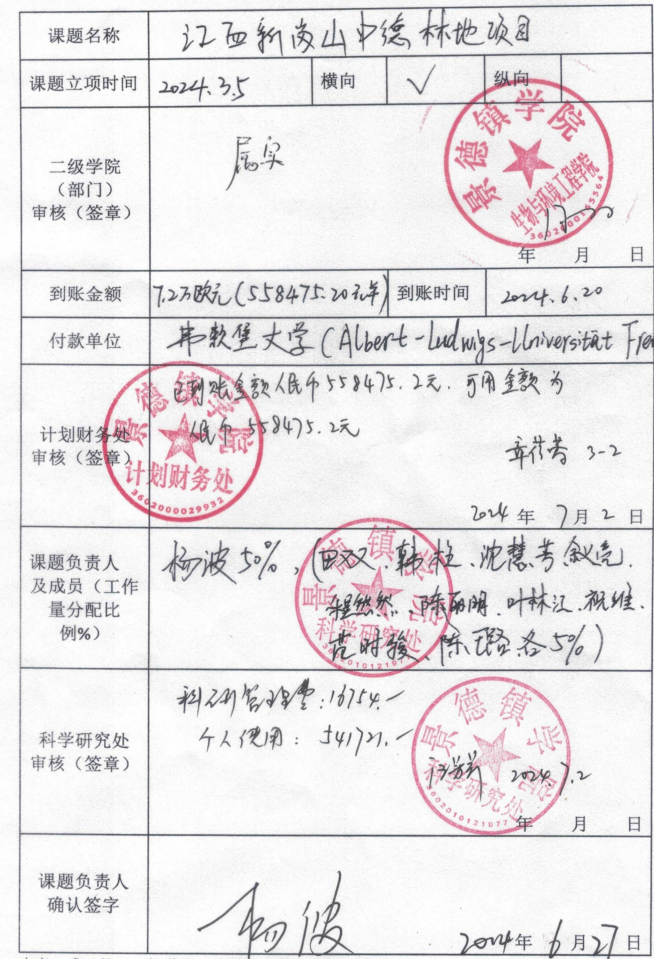 课题名称 江西新岗山中德林地项目
课题立项时间 2024.3.5 横向 √ 纵向
二级学院
（部门）
审核（签章）
属实
景德镇学院
生物与环境工程学院
年 月 日
到账金额 7.2万欧元(558475.20元 到账时间 2024.6.20
付款单位 弗赖堡大学(Albert-Ludwigs-Universität Fre
计划财务处
审核（签章）
已到账金额人民币558475.2元.可用金额为
人民币558475.2元
景德镇学院
计划财务处
3602000029932
3-2
2024年7月2日
课题负责人
及成员（工作
量分配比
例%）
杨波50%、(田双、韩柱、沈慧芳、叙亮、
程然然、陈丽明、叶林江、祝维、
范时骏、陈璐各5%)
景德镇学院
科学研究处
科学研究处
审核（签章）
科研管理费:16754.—
个人使用: 541721.—
景德镇学院
科学研究处
3602010121077
2024.7.2
年 月 日
课题负责人
确认签字
杨波
2024年6月27日